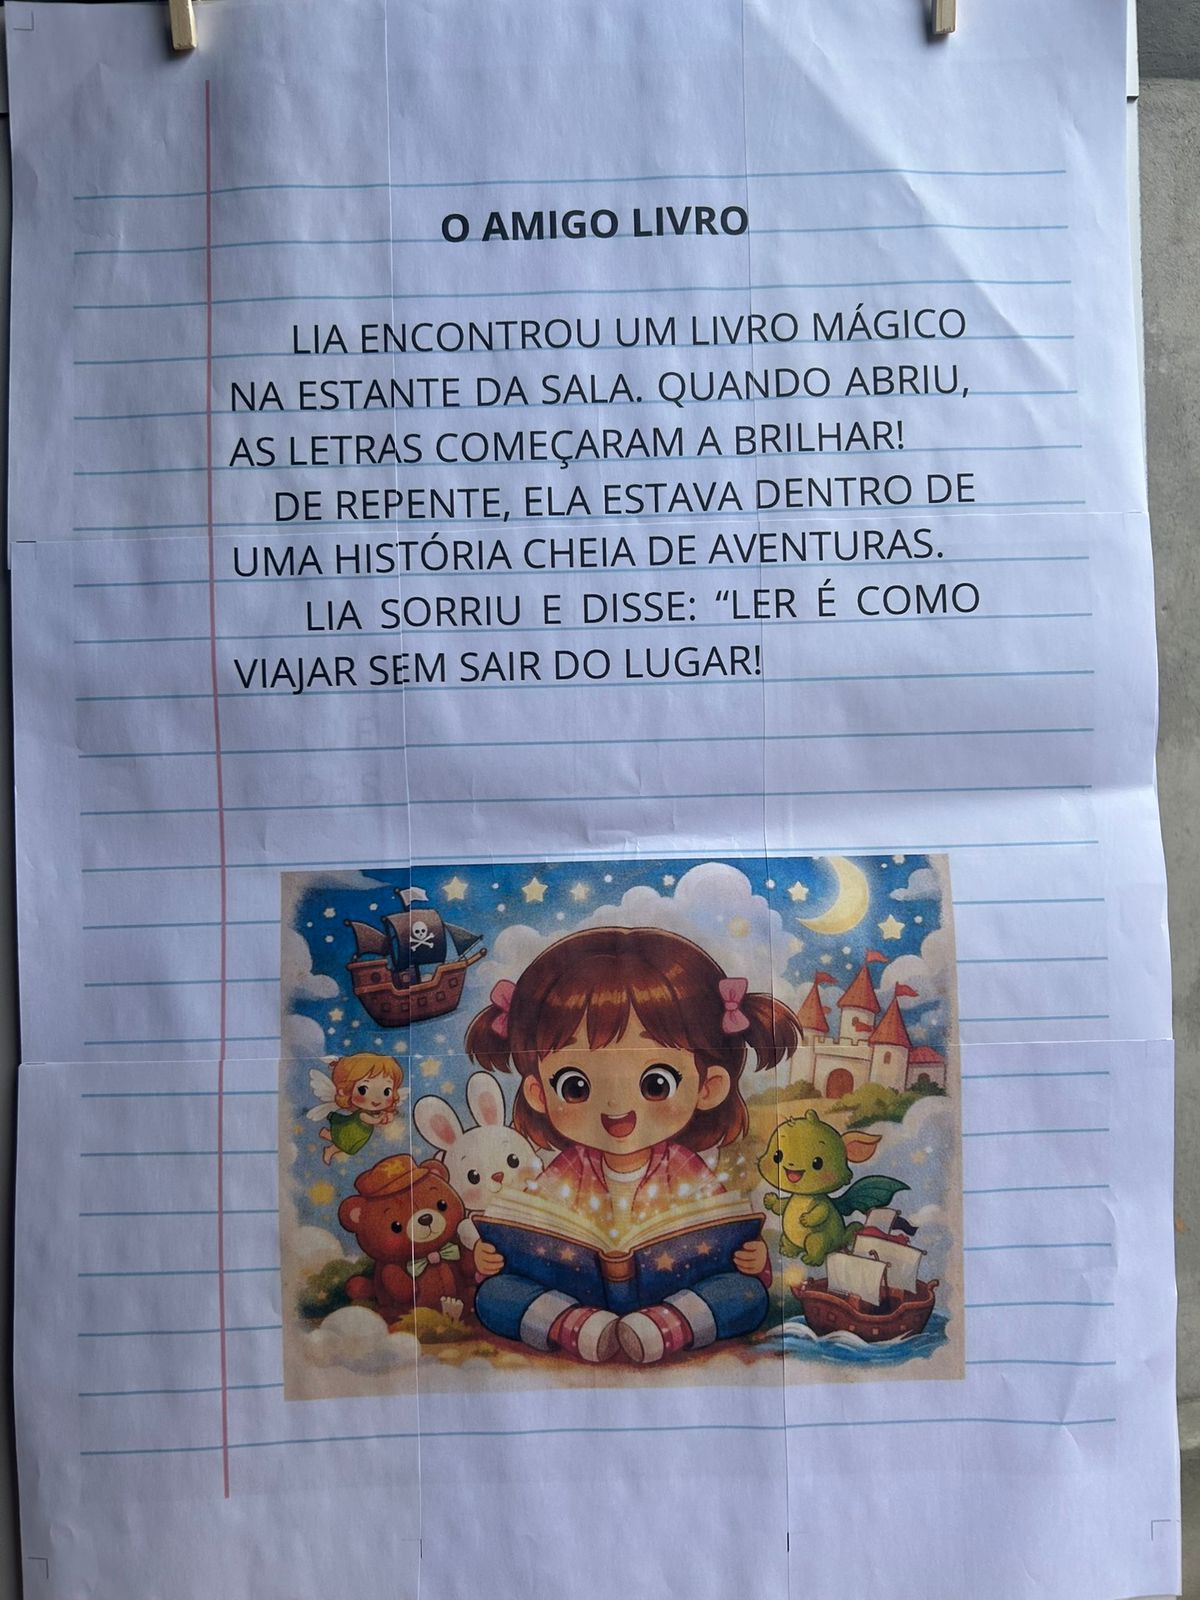 O AMIGO LIVRO
LIA ENCONTROU UM LIVRO MÁGICO
NA ESTANTE DA SALA. QUANDO ABRIU,
AS LETRAS COMEÇARAM A BRILHAR!
DE REPENTE, ELA ESTAVA DENTRO DE
UMA HISTÓRIA CHEIA DE AVENTURAS.
LIA SORRIU E DISSE: “LER É COMO
VIAJAR SEM SAIR DO LUGAR!